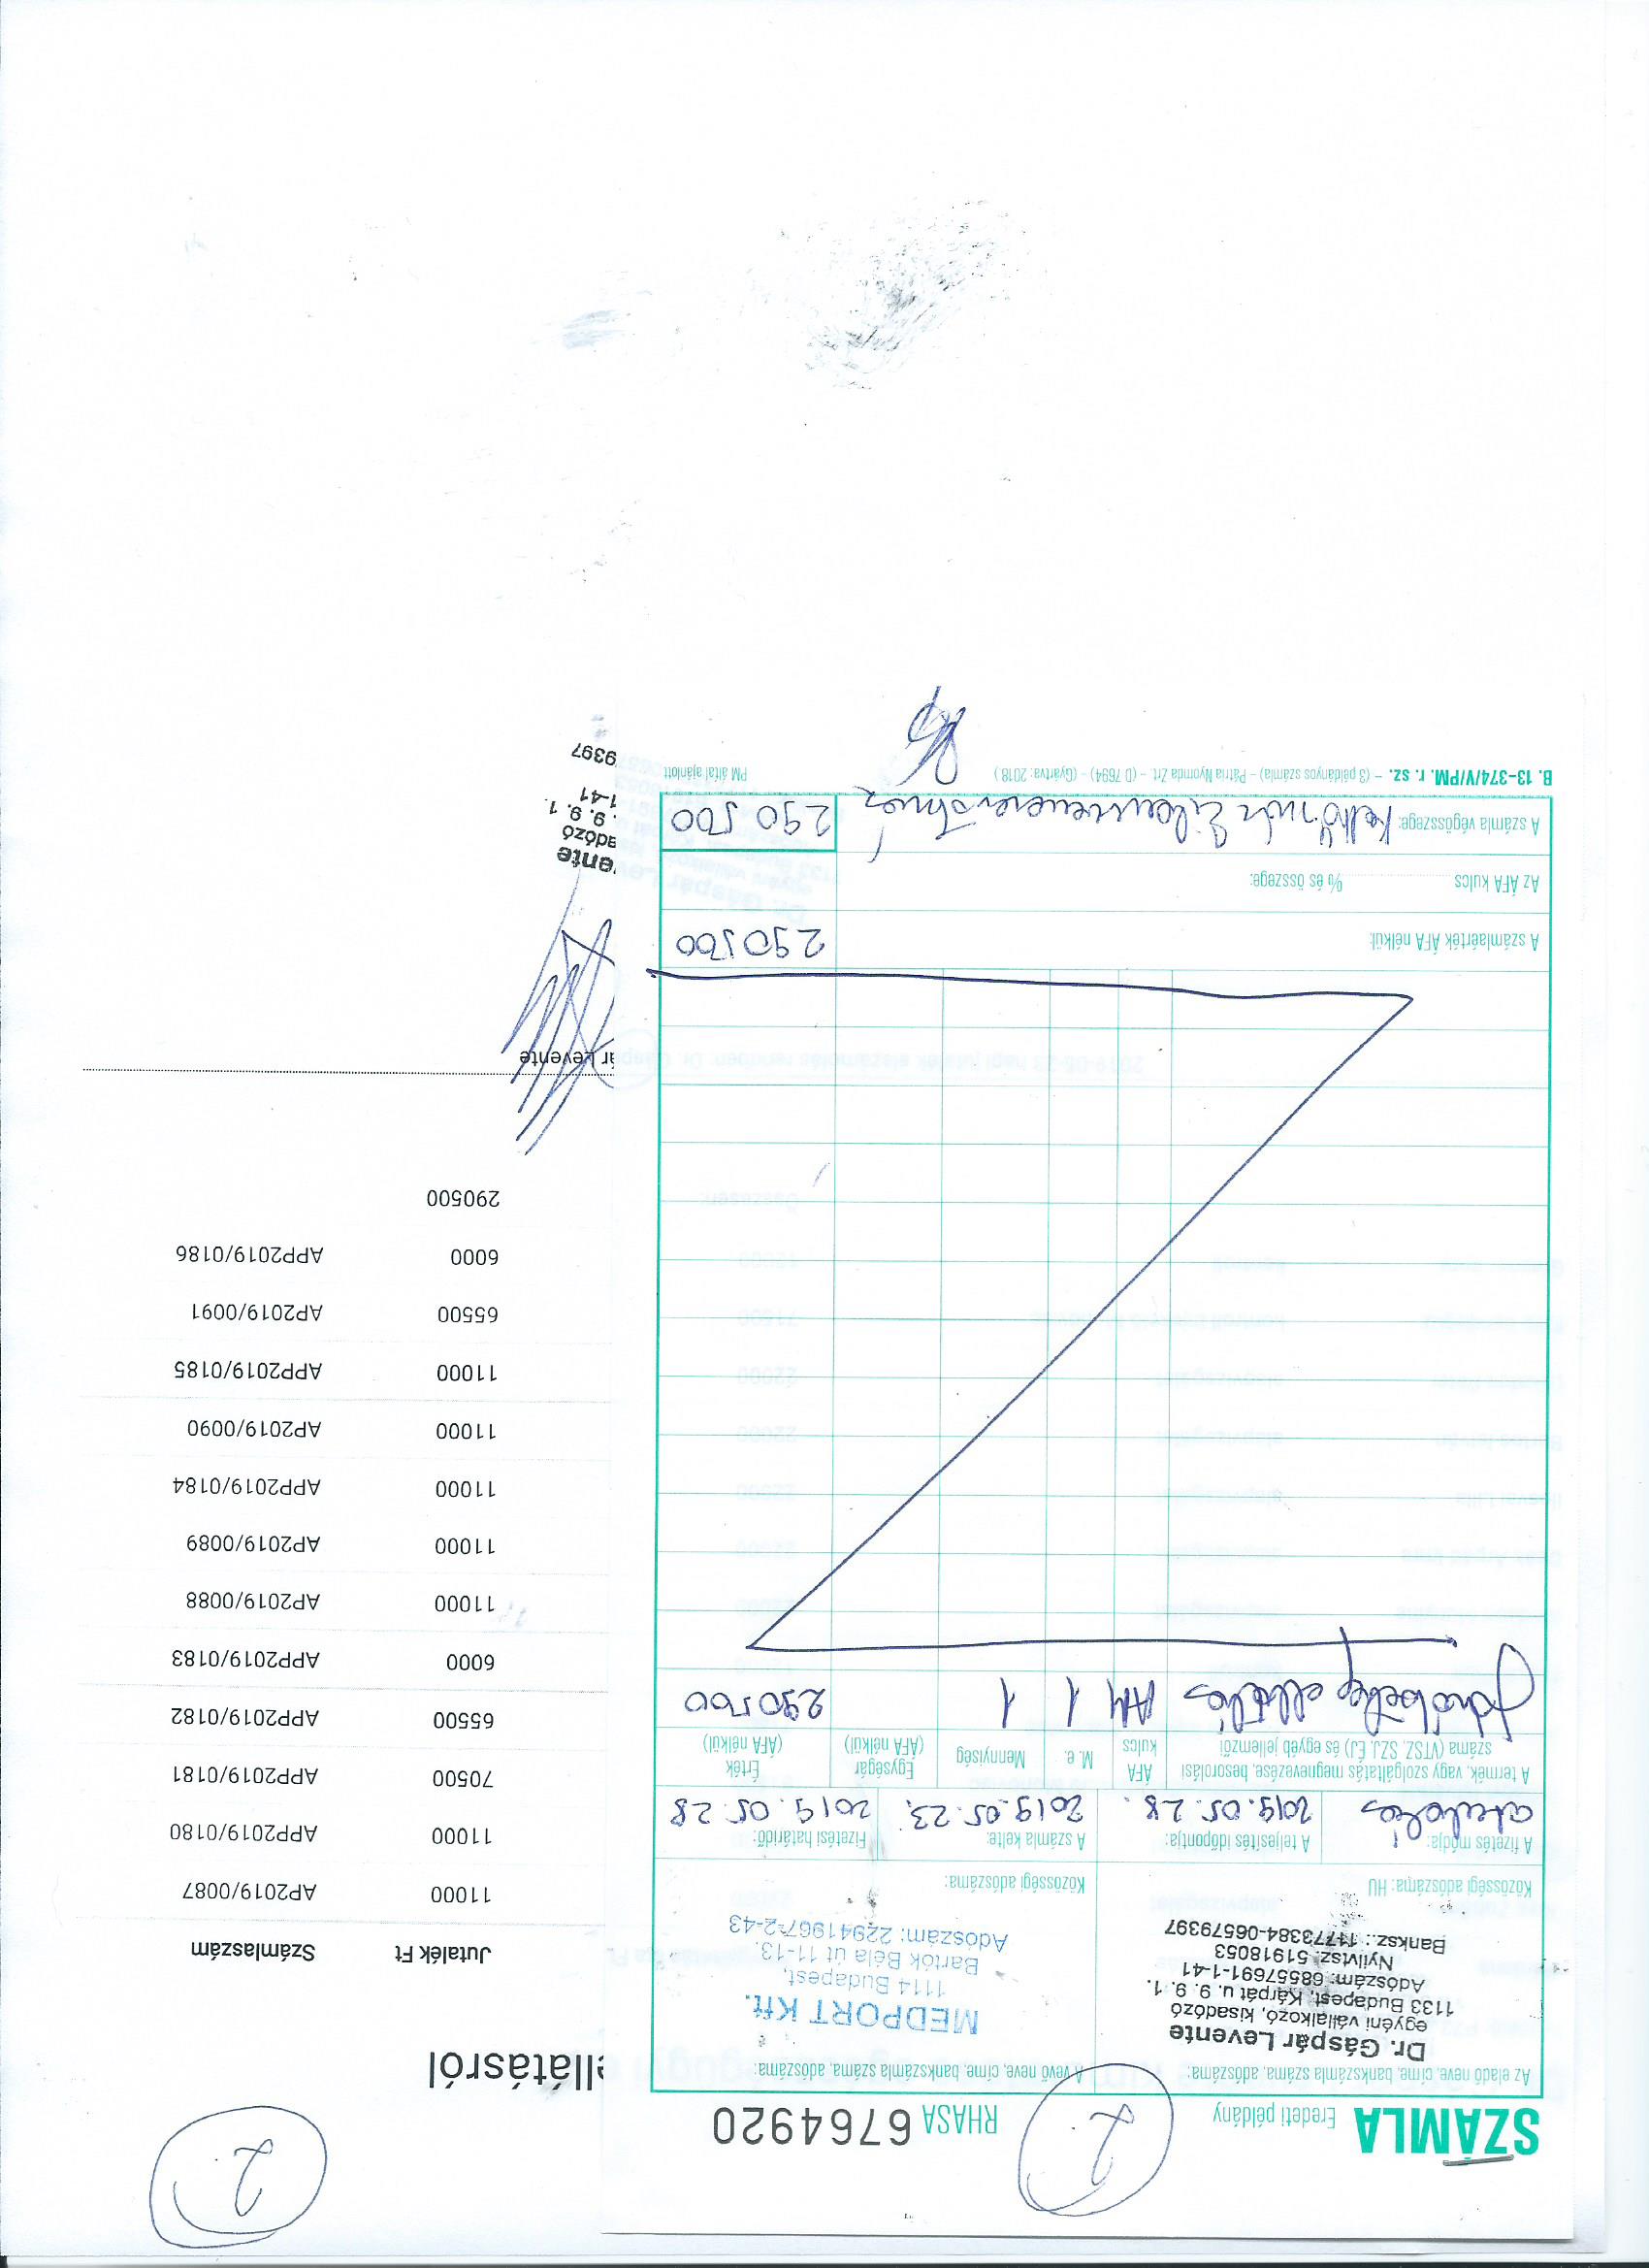 2.
2.
SZÁMLA Eredeti példány RHASA 6764920
ellátásról
Az eladó neve, címe, bankszámla száma, adószáma:
Dr. Gáspár Levente
egyéni vállalkozó, kisadózó
1133 Budapest, Kárpát u. 9. 9. 1.
Adószám: 68557691-1-41
Nyilvtsz: 51918053
Banksz.: 11773384-06579397
Közösségi adószáma: HU
A vevő neve, címe, bankszámla száma, adószáma:
MEDPORT Kft.
1114 Budapest,
Bartók Béla út 11-13.
Adószám: 22941967-2-43
Közösségi adószáma:
A fizetés módja:
átutalás
A teljesítés időpontja:
2019.05.28.
A számla kelte:
2019.05.23.
Fizetési határidő:
2019.05.28
A termék, vagy szolgáltatás megnevezése, besorolási
száma (VTSZ, SZJ, ÉJ) és egyéb jellemzői
ÁFA
kulcs
M. e.
Mennyiség
Egységár
(ÁFA nélkül)
Érték
(ÁFA nélkül)
Járóbeteg ellátás AM 1 1 290500
A számlaérték ÁFA nélkül: 290500
Az ÁFA kulcs % és összege:
A számla végösszege: 290 500
B. 13-374/V/PM. r. sz. – (3 példányos számla) – Pátria Nyomda Zrt. – (D 7694) – (Gyártva: 2018.) PM által ajánlott
Jutalék Ft Számlaszám
11000 AP2019/0087
11000 APP2019/0180
70500 APP2019/0181
65500 APP2019/0182
6000 APP2019/0183
11000 AP2019/0088
11000 AP2019/0089
11000 APP2019/0184
11000 AP2019/0090
11000 APP2019/0185
65500 AP2019/0091
6000 APP2019/0186
290500
ár Levente
ente
adózó
. 9. 9. 1.
1-41
9397